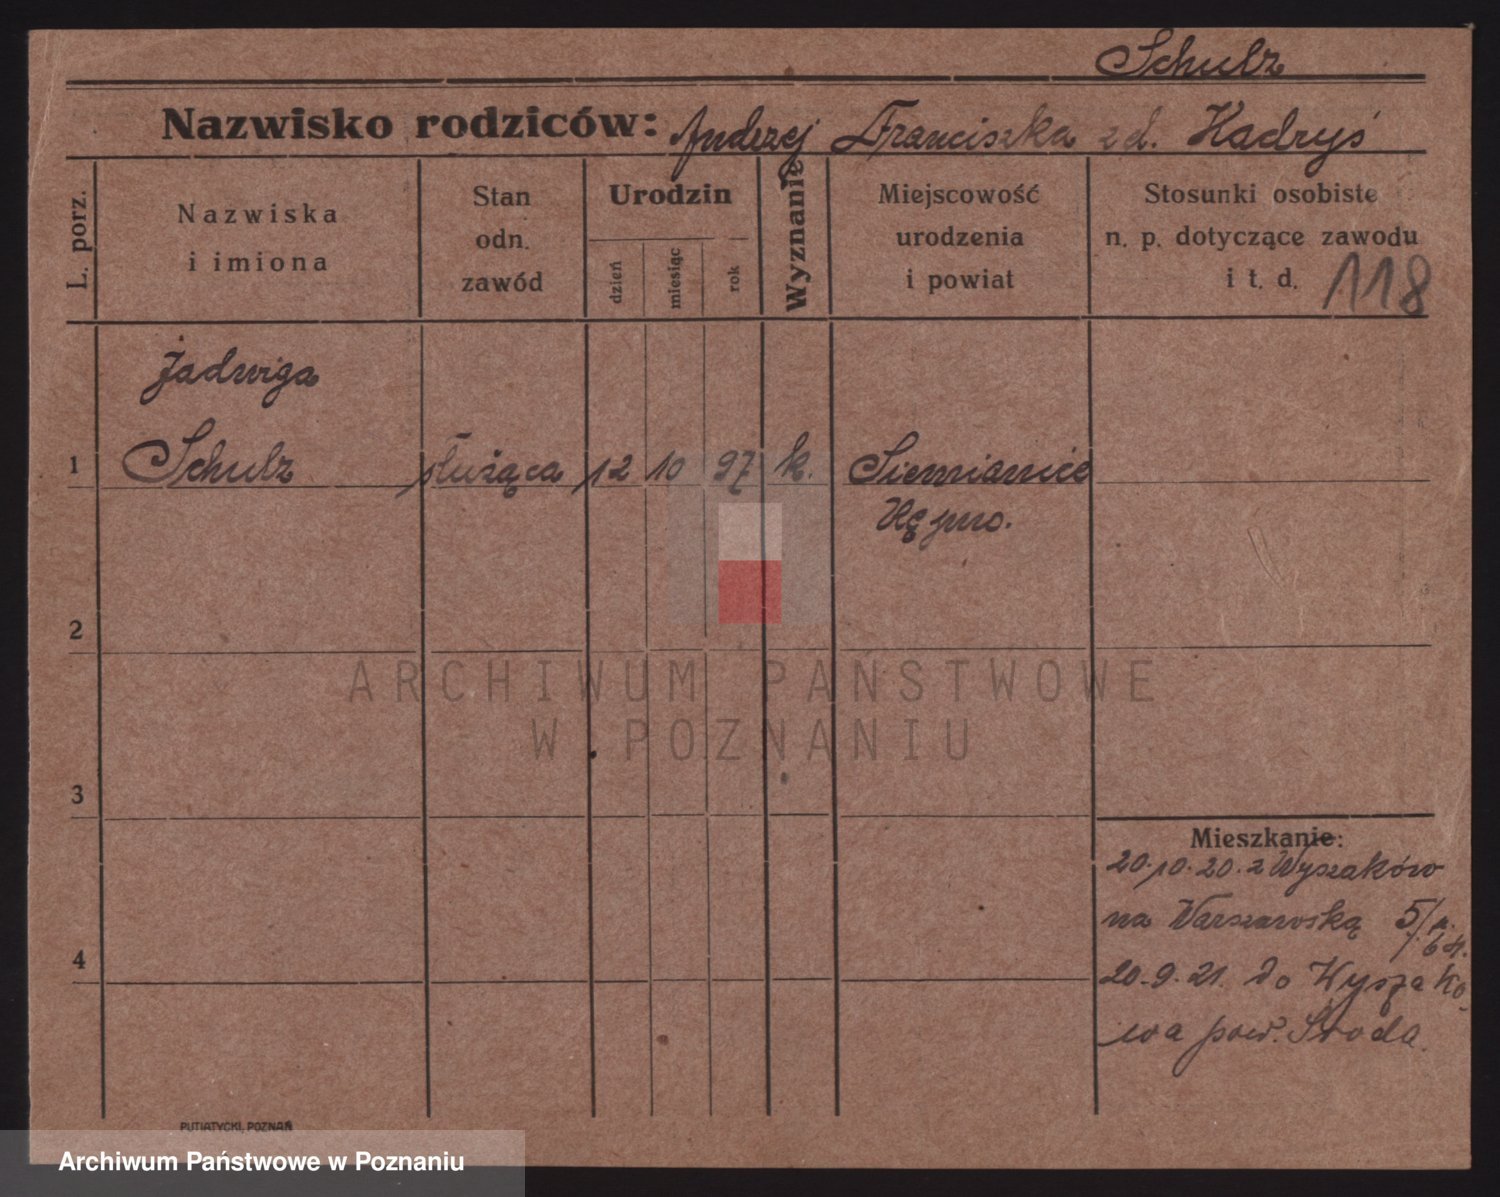 Schulz
Nazwisko rodziców: Andrzej Franciszka zd. Kadryś
L. porz.
Nazwiska
i imiona
Stan
odn.
zawód
Urodzin
dzień
miesiąc
rok
Wyznanie
Miejscowość
urodzenia
i powiat
Stosunki osobiste
n. p. dotyczące zawodu
i t. d.
118
Jadwiga
1 Schulz służąca 12 10 97 k. Siemianice
Kępno.
2
ARCHIWUM PAŃSTWOWE
W POZNANIU
3
Mieszkanie:
20.10.20. z Wyszaków
na Warszawską 5/
4
20.9.21. do Wyszako-
wa pow. Środa.
PUTIATYCKI, POZNAŃ
Archiwum Państwowe w Poznaniu